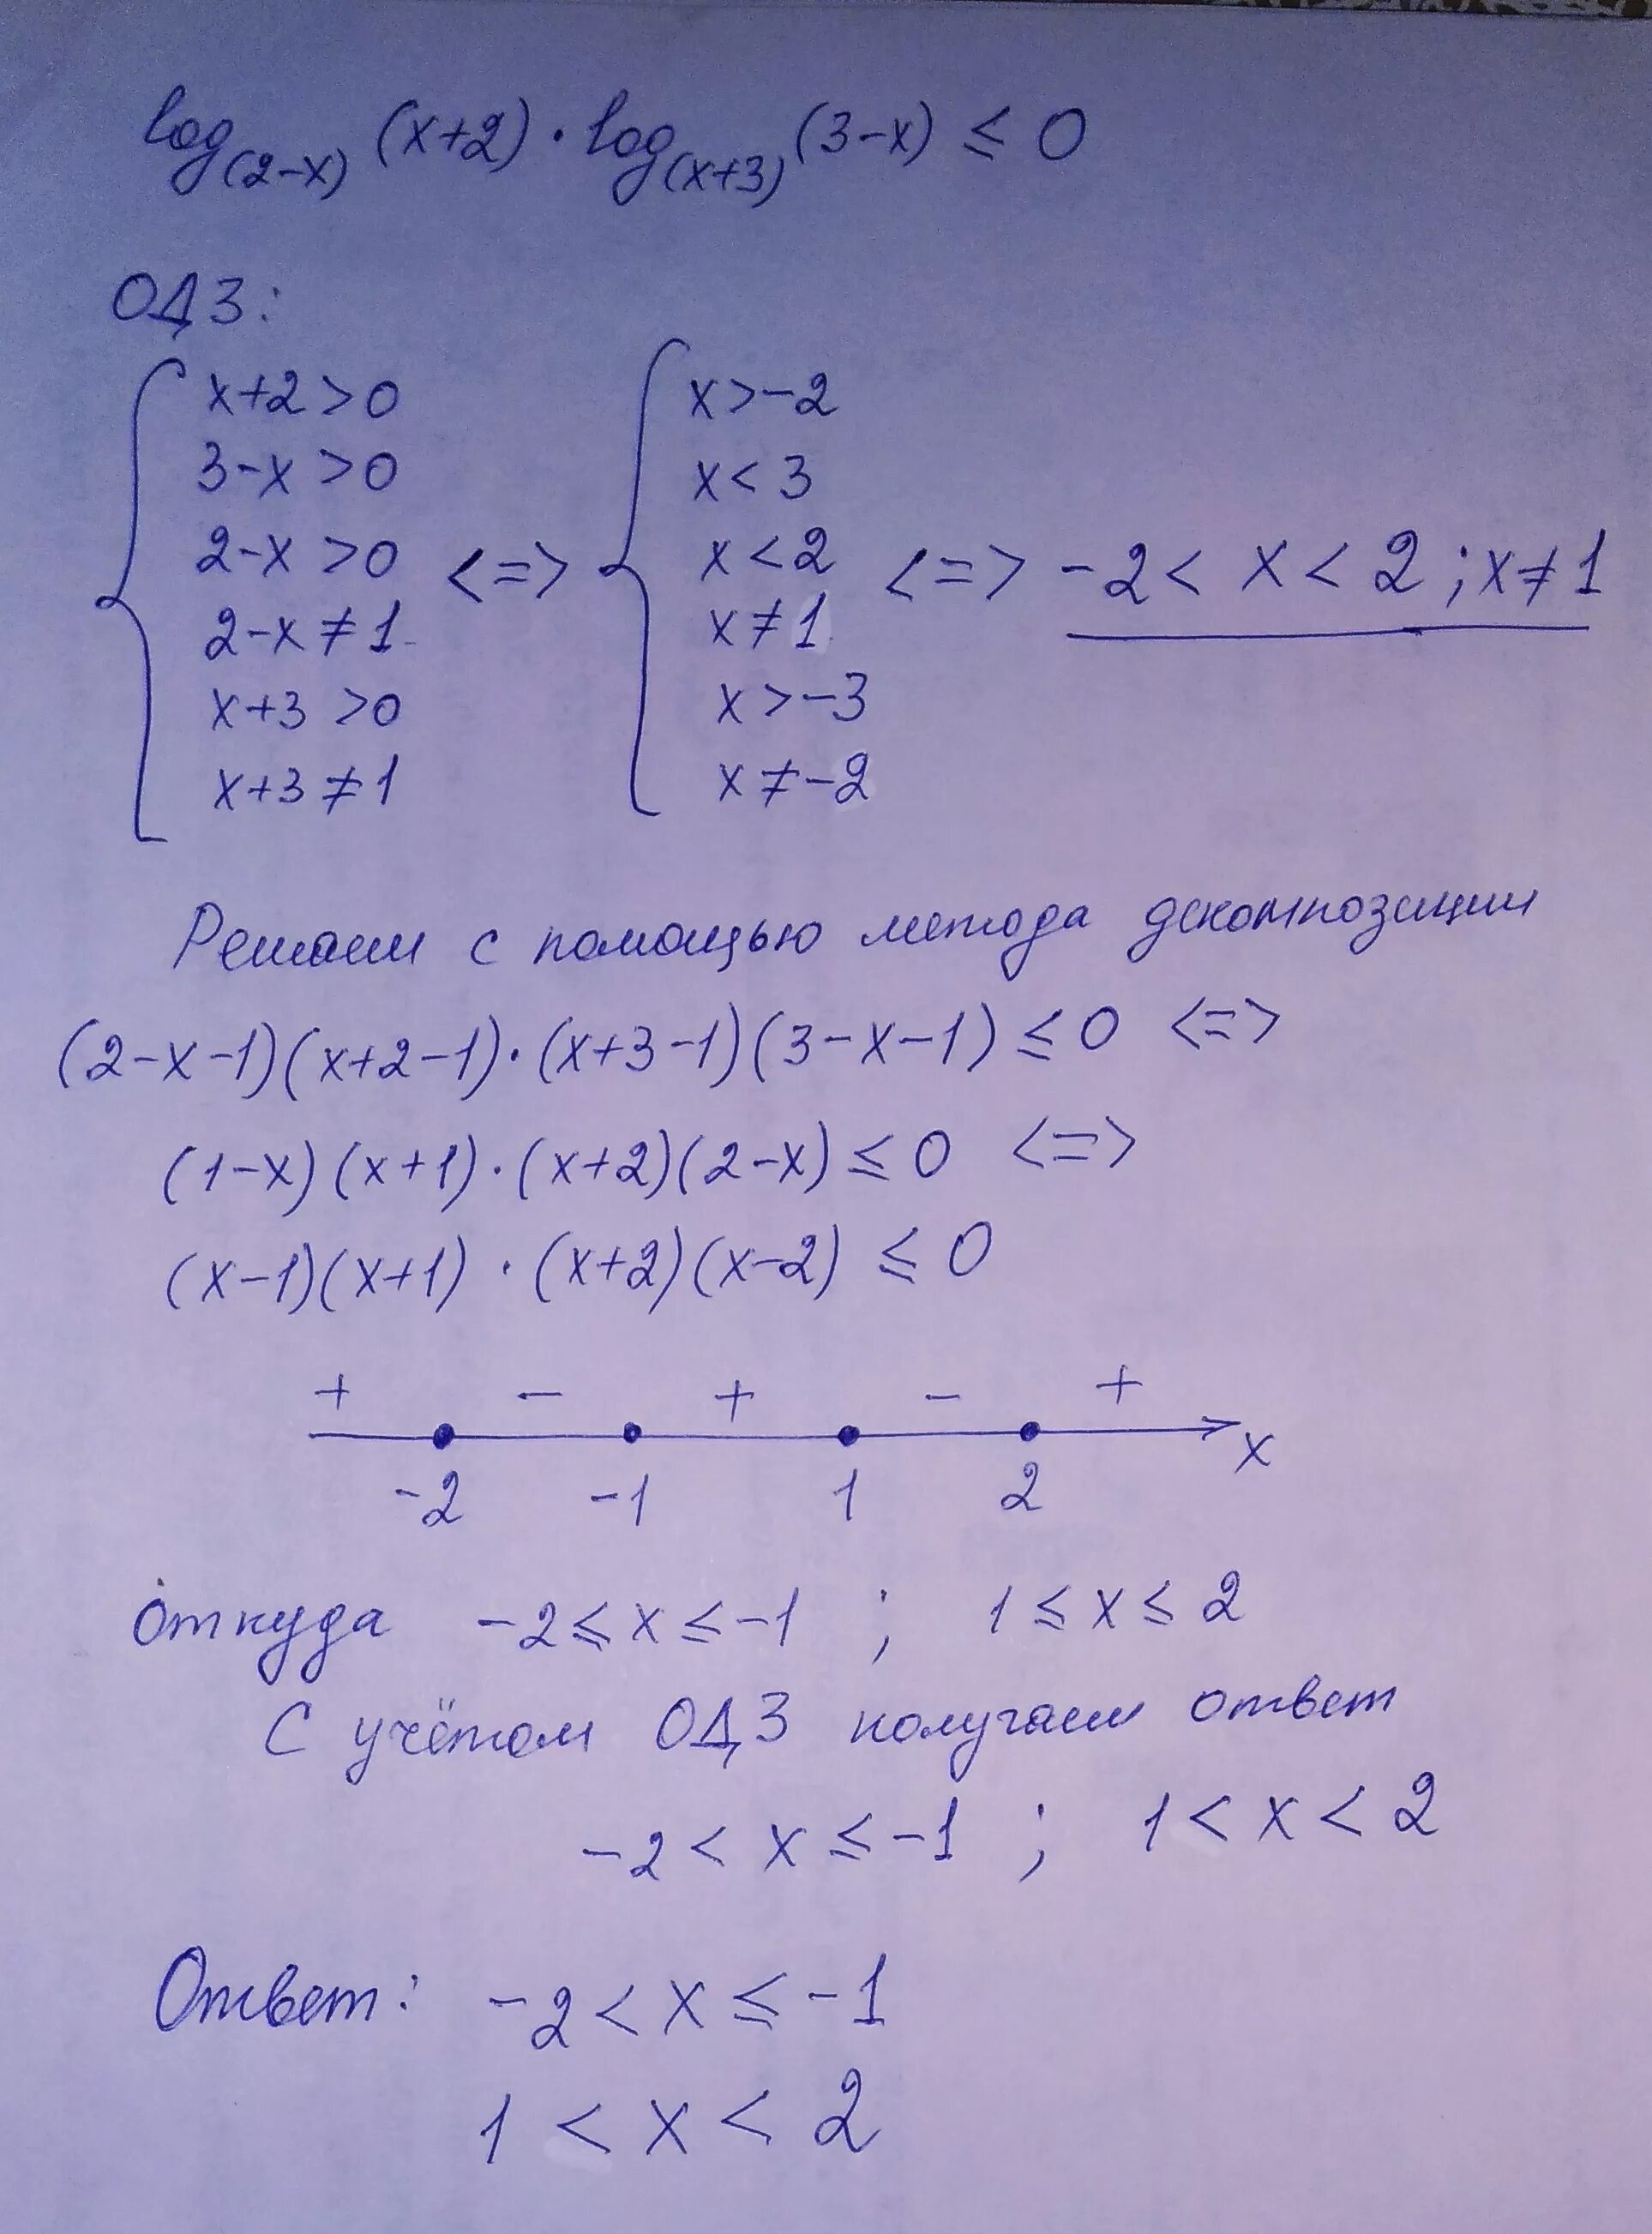 log₍₂₋ₓ₎ (x+2) · log₍ₓ₊₃₎ (3-x) ≤ 0
ОДЗ:
x+2 >0
3-x >0
2-x >0
2-x ≠ 1
x+3 >0
x+3 ≠ 1
<=>
x>-2
x< 3
x<2
x≠1
x >-3
x ≠-2
<=> -2 < x < 2 ; x≠1
Решаем с помощью метода декомпозиции
(2-x-1)(x+2-1)·(x+3-1)(3-x-1) ≤ 0 <=>
(1-x)(x+1)·(x+2)(2-x) ≤ 0 <=>
(x-1)(x+1) · (x+2)(x-2) ≤ 0
+ - + - +
-2 -1 1 2 x
откуда -2 ≤ x ≤ -1 ; 1 ≤ x ≤ 2
С учётом ОДЗ получаем ответ
-2 < x ≤ -1 ; 1 < x < 2
Ответ: -2 < x ≤ -1
1 < x < 2